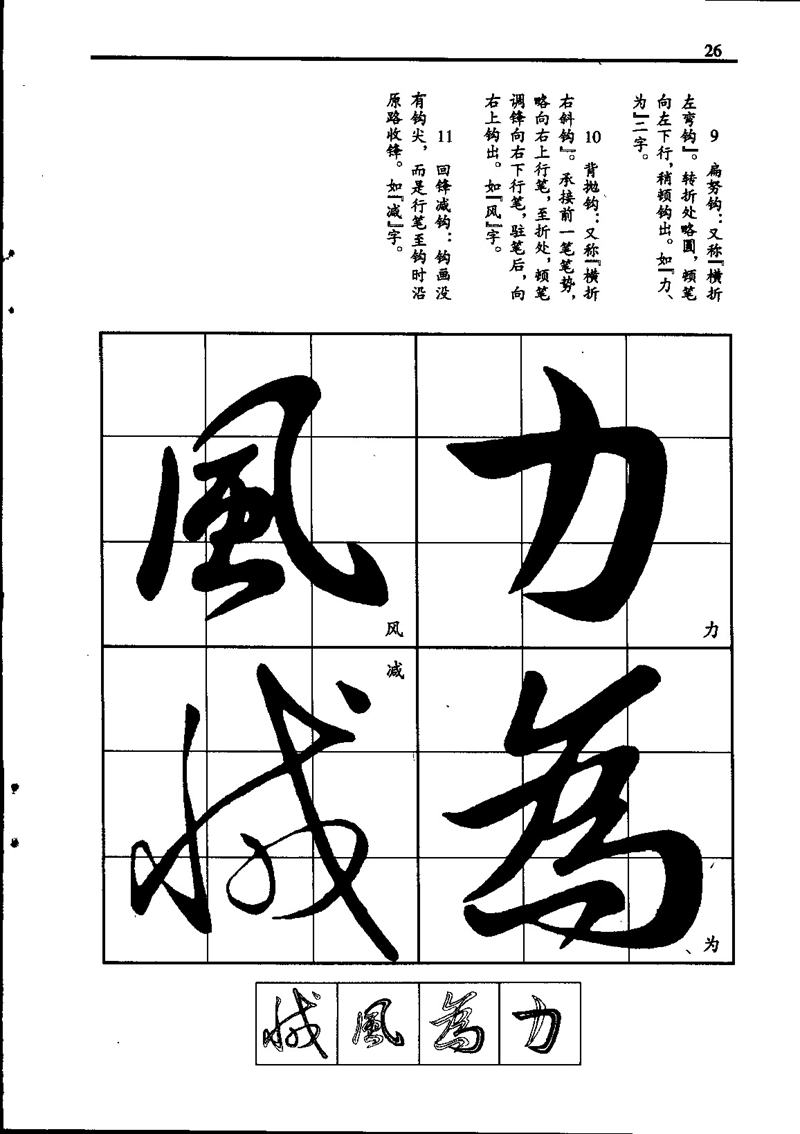 26
9 扁努钩：又称『横折
左弯钩』。转折处略圆，顿笔
向左下行，稍顿钩出。如『力、
为』二字。
10 背抛钩：又称『横折
右斜钩』。承接前一笔笔势，
略向右上行笔，至折处，顿笔
调锋向右下行笔，驻笔后，向
右上钩出。如『风』字。
11 回锋减钩：钩画没
有钩尖，而是行笔至钩时沿
原路收锋。如『减』字。
力
力
為
为
風
风
減
减
力
為
風
減